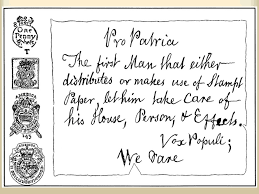 One
Penny
Pro Patria
The first Man that either
distributes or makes use of Stampt
Paper, let him take Care of
his House, Person, & Effects.
Vox Populi;
We dare
AMERICA
AMERICA